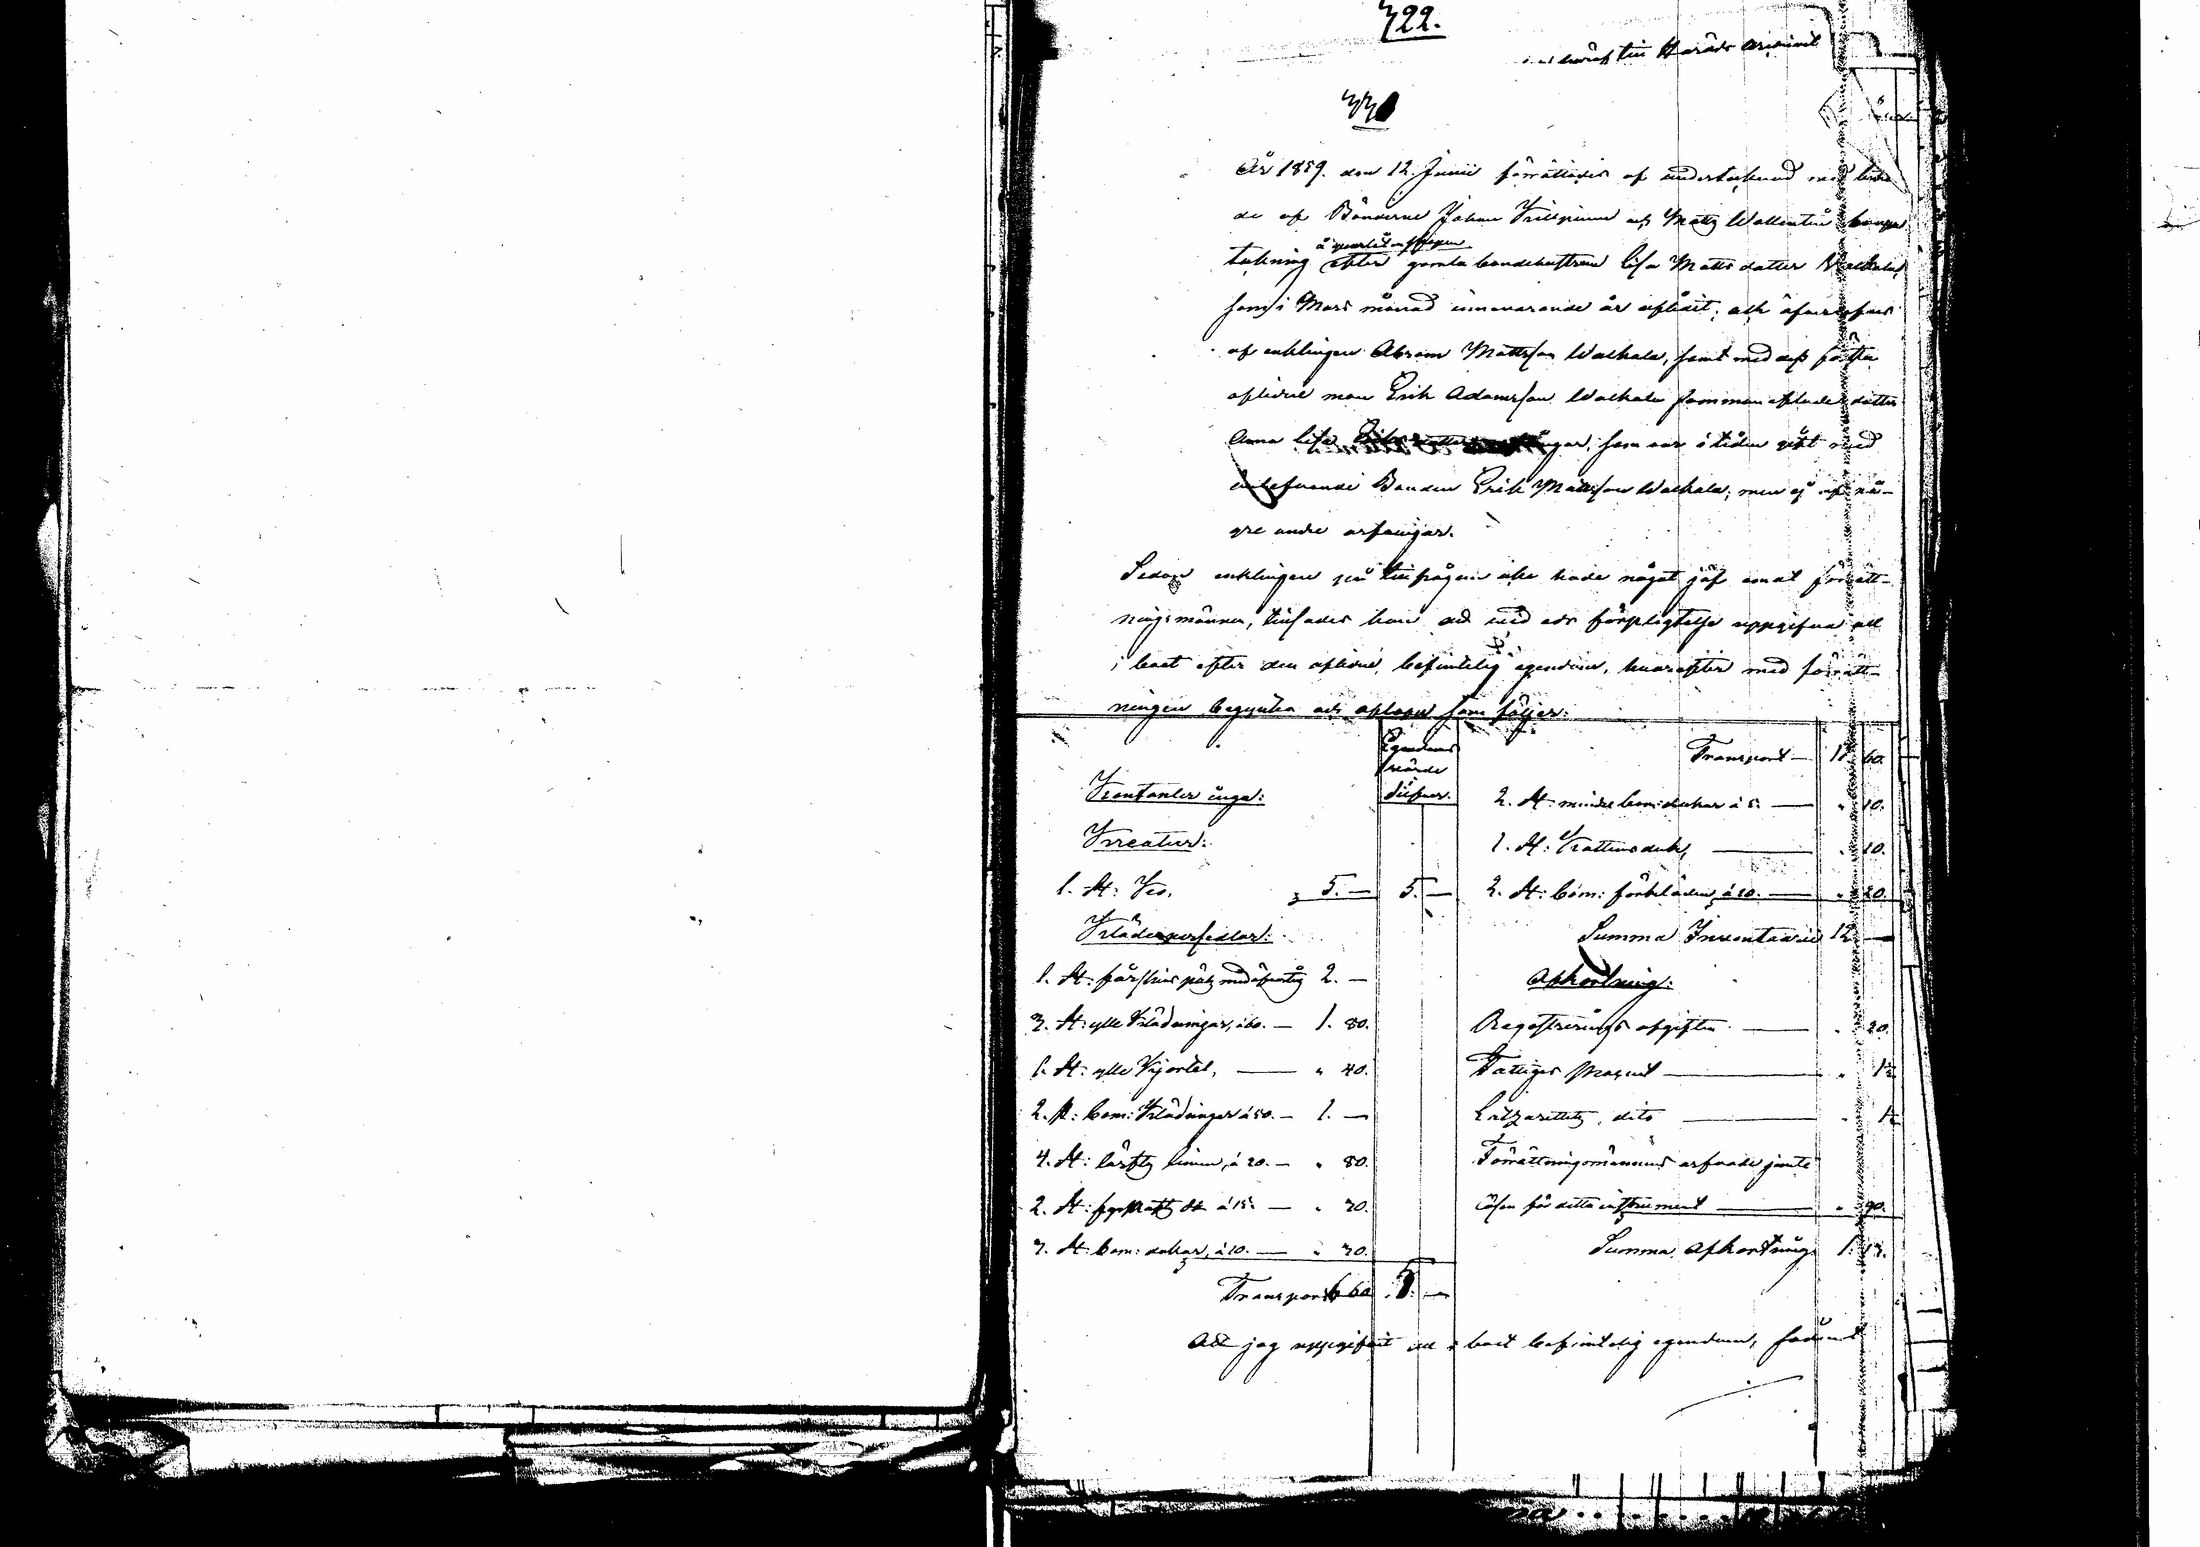 722.
till Härads Archivet
År 1859. den 12. Junii förrättades af undertecknad med biträ
de af Bönderne Johan Krillpinen och Matts Wallentin bouppe
teckning efter gamla bondehustrun Lisa Matts dotter Walkala,
som i Mars månad innevarande år aflidit, och
af enklingen Abram Mattsson Walkala, samt med dess förra
aflidne man Erik Adamsson Walkala sammanaflade dotter
Anna Lisa som var i tiden gift med
Bonden Erik Mattsson Walkala; men ej af nå-
gre andre arfvingar.
Sedan enklingen på tillfrågan icke hade något jäf emot förrätt-
ningsmännen, tillsades han att med eds förpligtelse uppgifva all
i boet efter den aflidne, befintelig egendom, hvarefter med förrätt-
ningen begyntes och aflopp som följer:
Egendoms
värde
Silfver.
Kontanter inga:
Kreatur:
1. St: Ko, 5. — 5. —
Klädespersedlar:
1. St: fårskins päls 2. —
3. St: ylle Klädningar, à 60. — 1. 80.
1. St: ylle Kjortel, — " 40.
2. St: bom: Klädningar à 50. — 1. —
4. St: lärfts linnen, à 20. — " 80.
2. St: d:o à 15. — " 30.
3. St: bom: dukar, à 10. — " 30.
Transport 6 60 5. —
Transport — 11 60.
2. St: mindre bom: dukar à 5. — " 10.
1. St: Kattuns duk, — " 10.
2. St: bom: förkläden, à 10. — " 20.
Summa Inventarie 12 —
Afkortning:
Registrerings afgiften — " 20.
Fattiges Procent — " 1½
Lazarettets dito — " 1½
Förrättningsmännens arfvode jemte
lösen för detta instrument — " 90.
Summa Afkortning 1. 13.
Att jag uppgifvit all i boet befintelig egendom, sådant